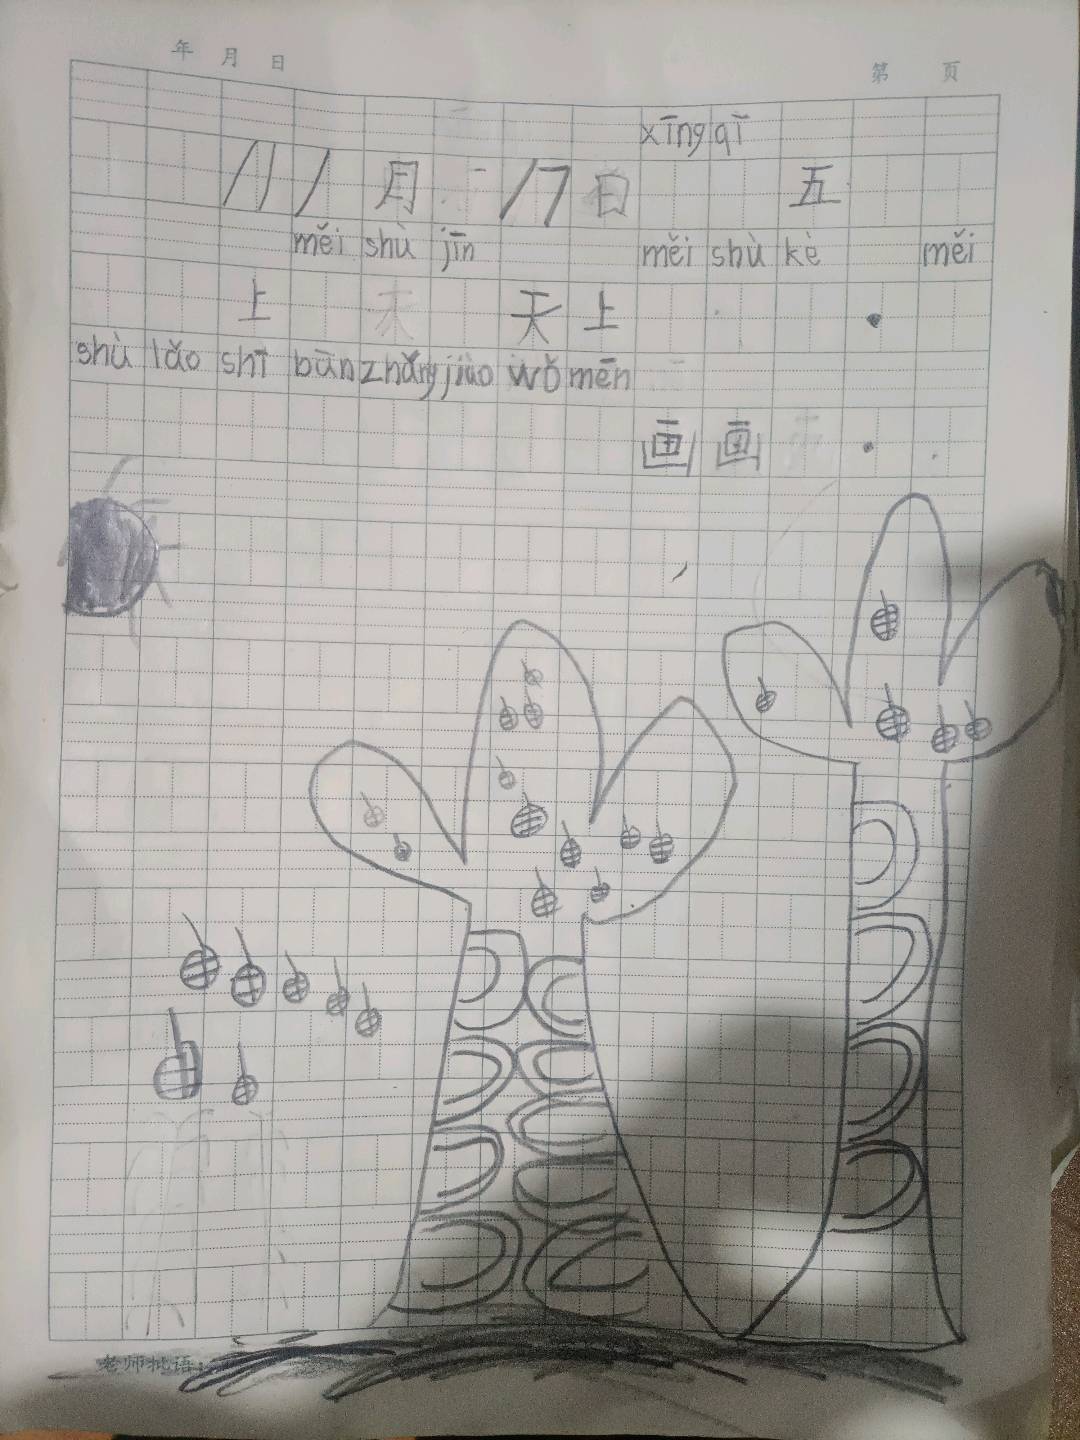 年 月 日 第 页
xīng qī
11月17日 五
měi shù jīn měi shù kè měi
上 天上 .
shù lǎo shī bān zhǎng jiāo wǒ mēn
画画 .
老师批语：